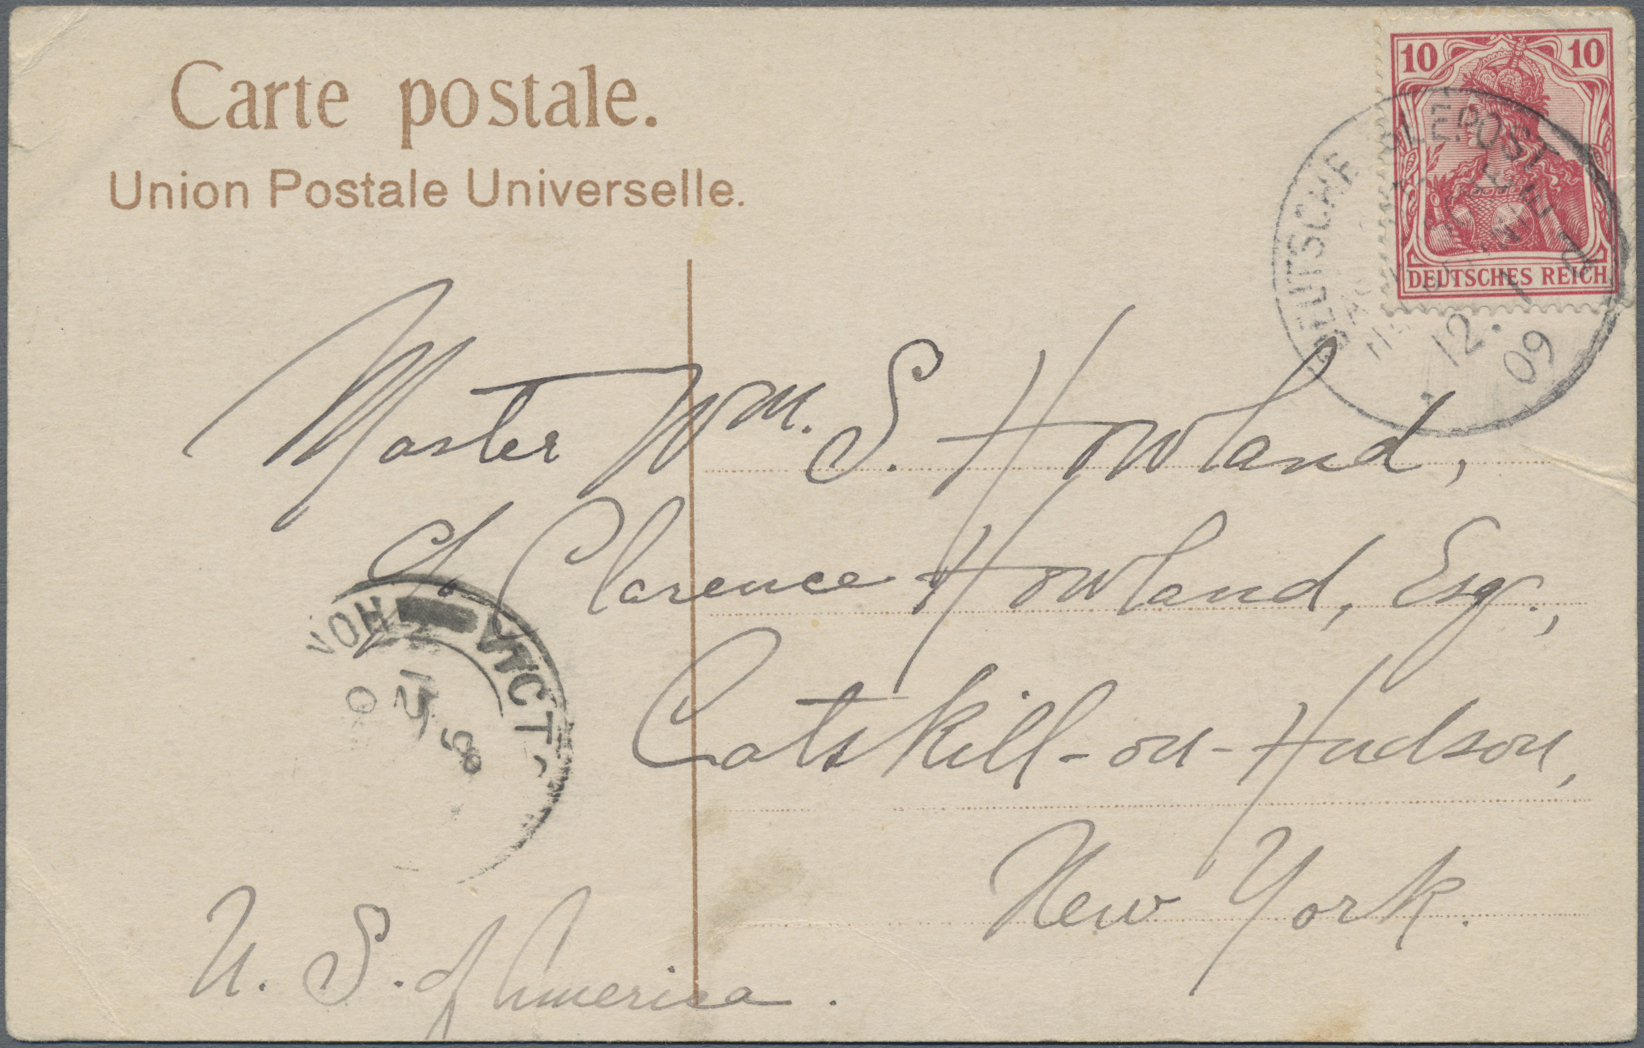 Carte postale.
Union Postale Universelle.
10 10
DEUTSCHES REICH
DEUTSCHE SEEPOST
12. 1
09
Master Wm. S. Howland,
c/o Clarence Howland, Esqr.,
Catskill-on-Hudson,
New York.
U. S. of America.
HON
VICT